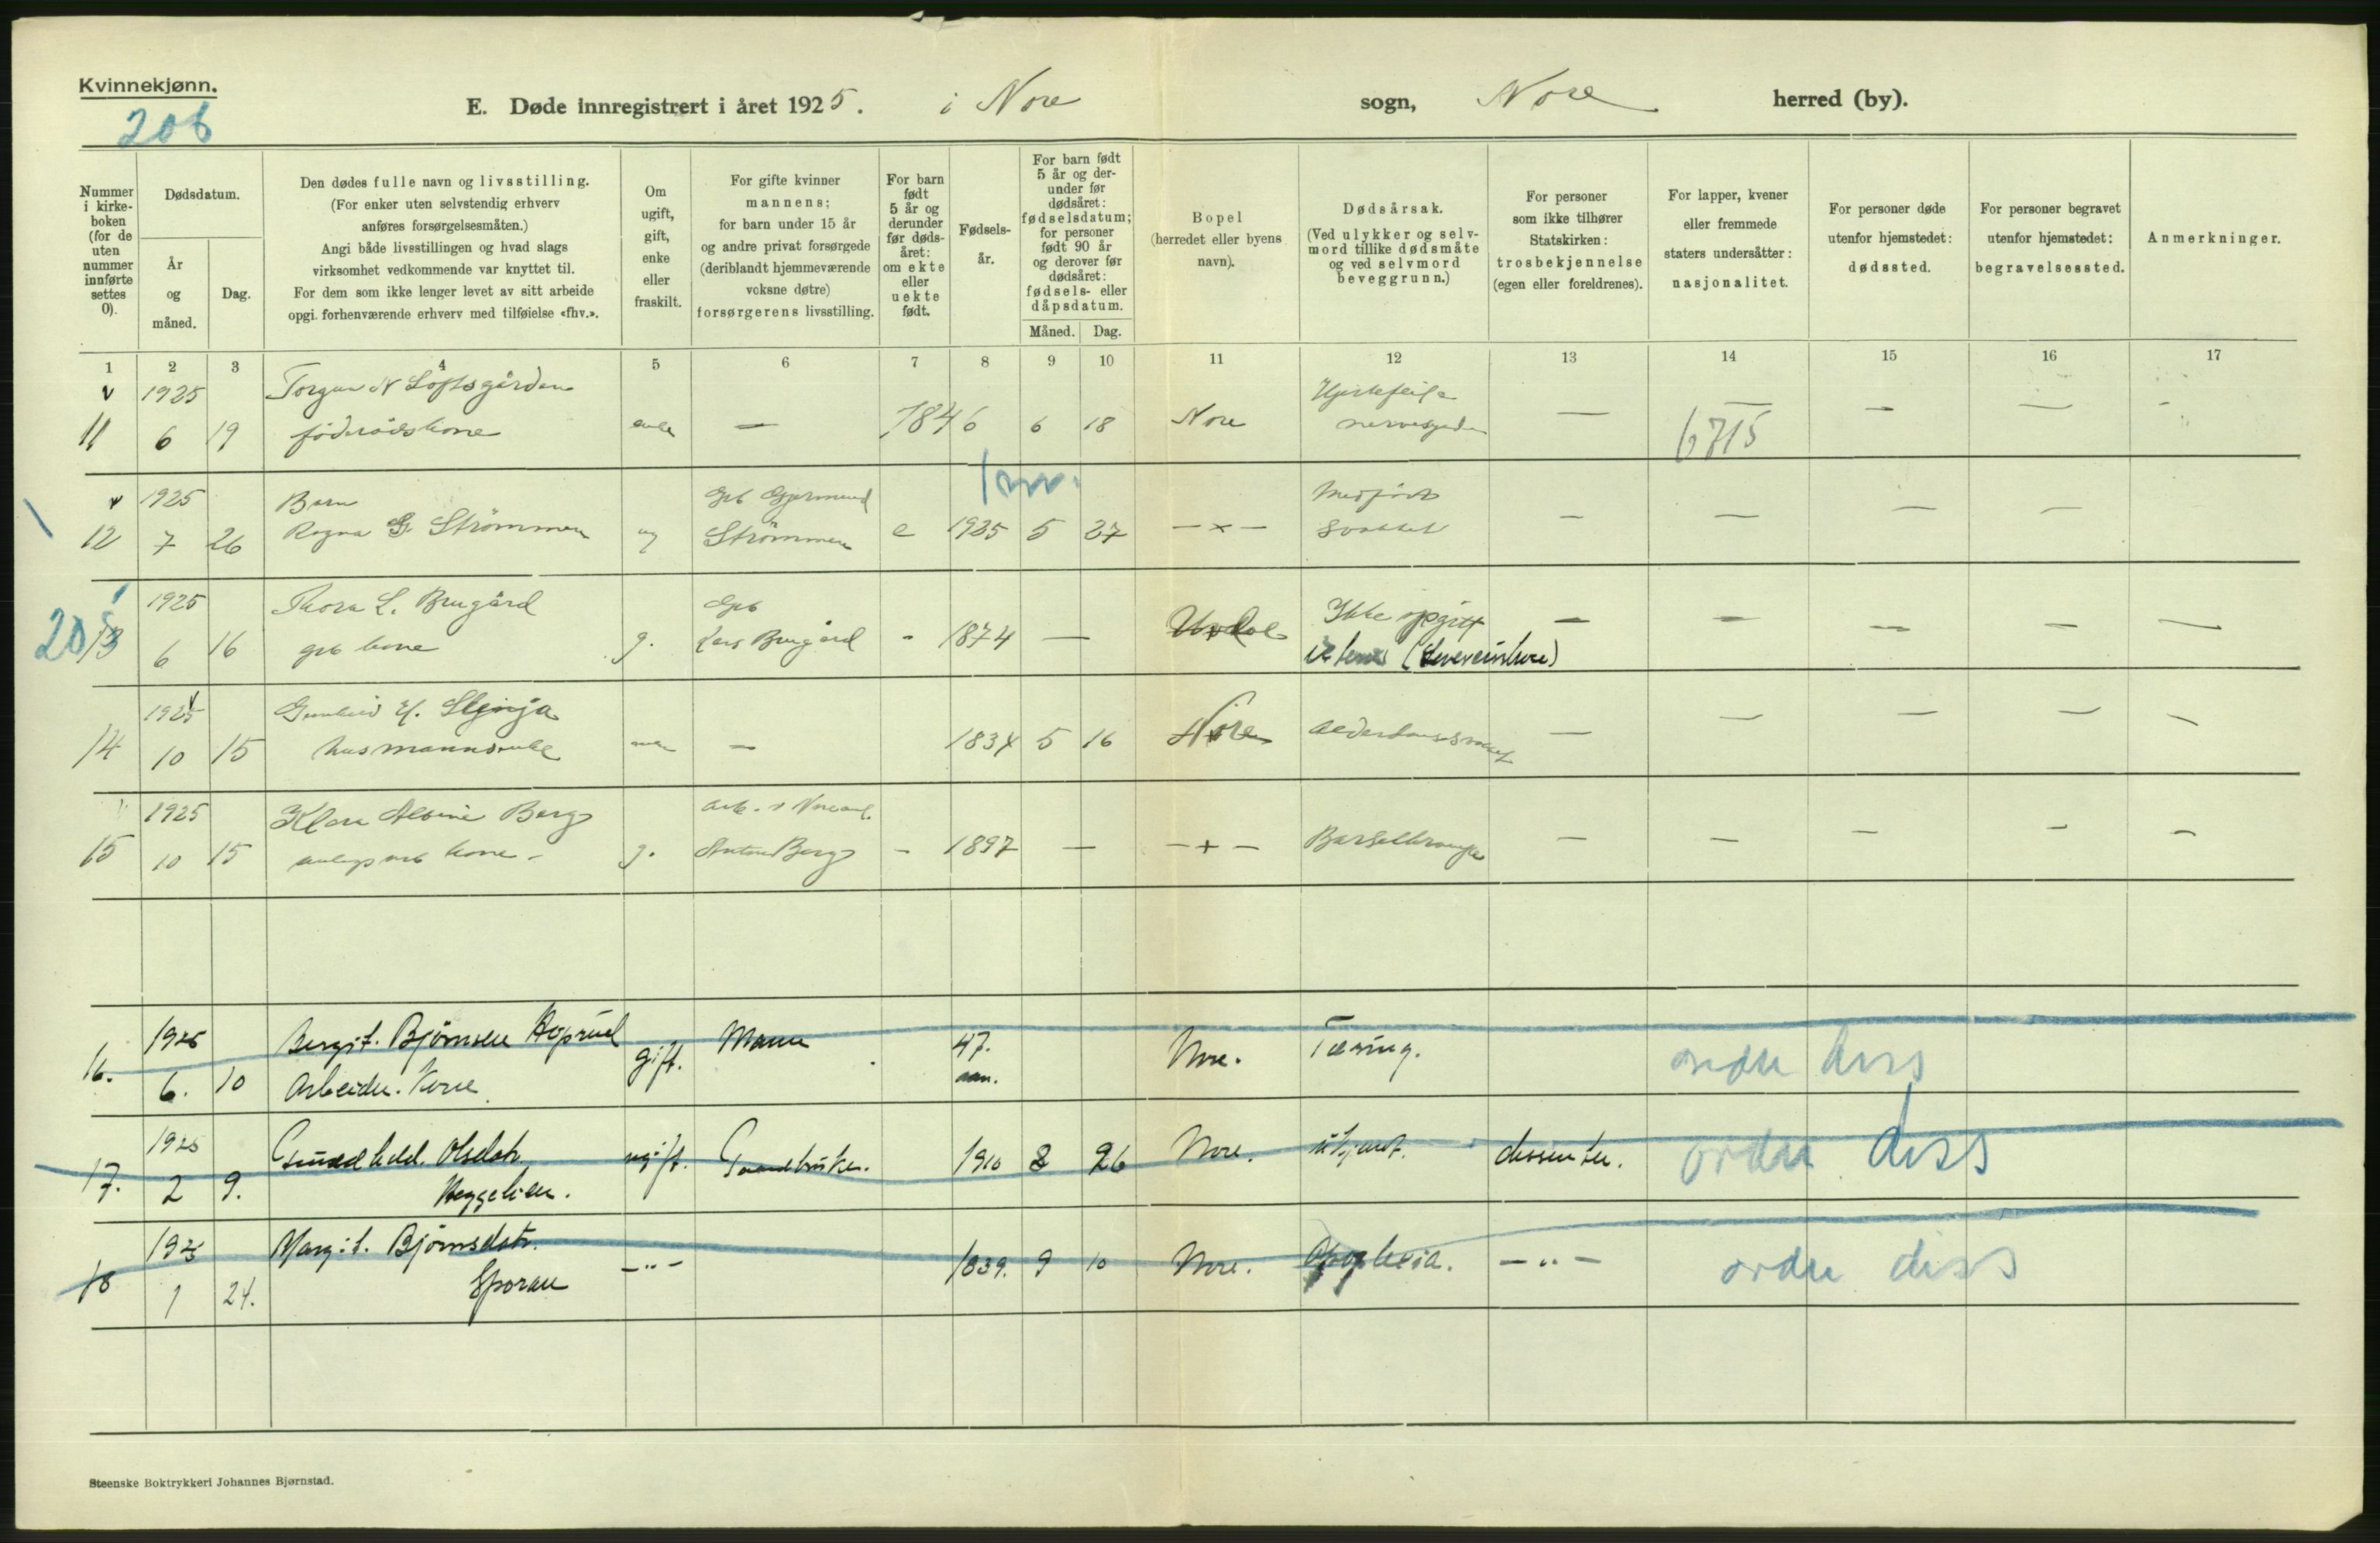 Kvinnekjønn.
206
E. Døde innregistrert i året 1925. i Nore sogn, Nore herred (by).
Nummer i kirkeboken (for de uten nummer innførte settes 0).
Dødsdatum.
År og måned.
Dag.
Den dødes fulle navn og livsstilling.
(For enker uten selvstendig erhverv
anføres forsørgelsesmåten.)
Angi både livsstillingen og hvad slags
virksomhet vedkommende var knyttet til.
For dem som ikke lenger levet av sitt arbeide
opgi. forhenværende erhverv med tilføielse «fhv.».
Om ugift, gift, enke eller fraskilt.
For gifte kvinner
mannens;
for barn under 15 år
og andre privat forsørgede
(deriblandt hjemmeværende
voksne døtre)
forsørgerens livsstilling.
For barn født 5 år og derunder før dødsåret: om ekte eller uekte født.
Fødselsår.
For barn født 5 år og derunder før dødsåret: fødselsdatum; for personer født 90 år og derover før dødsåret: fødsels- eller dåpsdatum.
Måned. Dag.
Bopel
(herredet eller byens
navn).
Dødsårsak.
(Ved ulykker og selvmord tillike dødsmåte og ved selvmord beveggrunn.)
For personer
som ikke tilhører
Statskirken:
trosbekjennelse
(egen eller foreldrenes).
For lapper, kvener
eller fremmede
staters undersåtter:
nasjonalitet.
For personer døde
utenfor hjemstedet:
dødssted.
For personer begravet
utenfor hjemstedet:
begravelsessted.
Anmerkninger.
1 2 3 4 5 6 7 8 9 10 11 12 13 14 15 16 17
1925 Torgun N Loftsgården
11 6 19 föderådskone enke — 1846 6 18 Nore — — — — -
6715
1925 Barn Gjermund
12 7 26 Ragna G. Strömmen ug Strömmen e 1925 5 27 — x — Medfödt svakhet — — — —
205
1925 Thora L. Brugård
13 6 16 grb kone g. Lars Brugård - 1874 — Uvdal Ikke opgitt — — — — —
1925
14 10 15 husmannsenke — 1834 5 16 Nore — — — — —
1925 Klara Alvine Berg
15 10 15 kone - g. Anton Berg - 1897 — — + — — — — — —
1925 Bergit. Björnsen
16. 6. 10 Arbeider. Kone gift. Mann 47. aar. Nore. Tæring. ordn diss
1925 Olsdatr.
17. 2 9. Heggelien. ugift. Gaardbruker. 1910 8 26 Nore. ukjendt. dissenter. ordn diss
1925 Margit. Björnsdatr.
18 1 24. Sporan — " — 1839. 9 10 Nore. Apoplexia. — " — ordn diss
Steenske Boktrykkeri Johannes Bjørnstad.